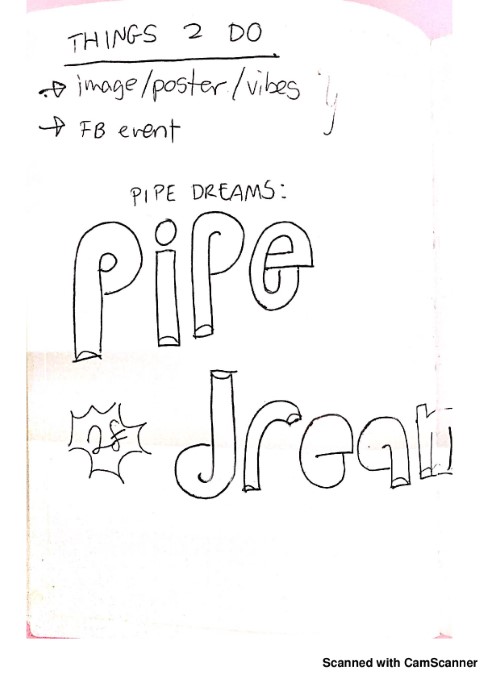 THINGS 2 DO
→ image/poster/vibes
→ FB event
PIPE DREAMS:
pipe
drea
Scanned with CamScanner